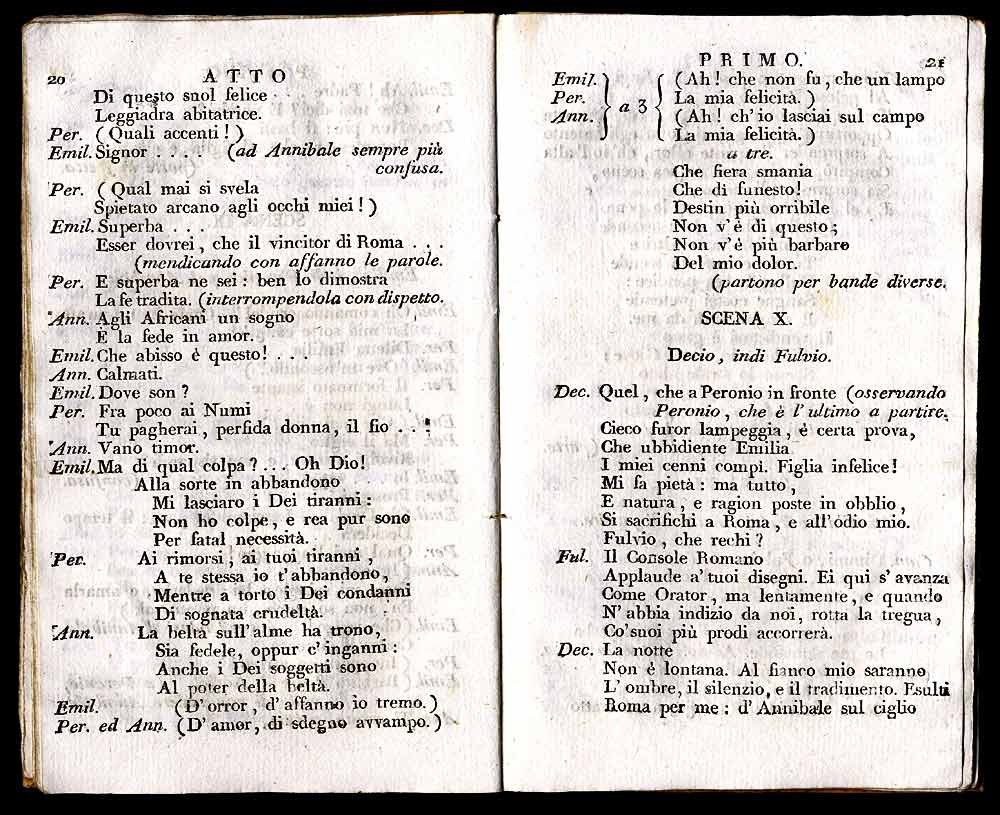 20 ATTO
Di questo suol felice
Leggiadra abitatrice.
Per. (Quali accenti!)
Emil. Signor . . . . (ad Annibale sempre più
confusa.
Per. (Qual mai si svela
Spietato arcano agli occhi miei!)
Emil. Superba . . .
Esser dovrei, che il vincitor di Roma . . .
(mendicando con affanno le parole.
Per. E superba ne sei: ben lo dimostra
La fe tradita. (interrompendola con dispetto.
Ann. Agli Africani un sogno
È la fede in amor.
Emil. Che abisso è questo! . . .
Ann. Calmati.
Emil. Dove son?
Per. Fra poco ai Numi
Tu pagherai, perfida donna, il fio . . :
Ann. Vano timor.
Emil. Ma di qual colpa? . . . Oh Dio!
Alla sorte in abbandono
Mi lasciaro i Dei tiranni:
Non ho colpe, e rea pur sono
Per fatal necessità.
Per. Ai rimorsi, ai tuoi tiranni,
A te stessa io t'abbandono,
Mentre a torto i Dei condanni
Di sognata crudeltà.
Ann. La beltà sull'alme ha trono,
Sia fedele, oppur c'inganni:
Anche i Dei soggetti sono
Al poter della beltà.
Emil. (D'orror, d'affanno io tremo.)
Per. ed Ann. (D'amor, di sdegno avvampo.)
PRIMO. 21
Emil. (Ah! che non fu, che un lampo
Per. La mia felicità.)
a 3
Ann. (Ah! ch'io lasciai sul campo
La mia felicità.)
a tre.
Che fiera smania
Che di funesto!
Destin più orribile
Non v'è di questo;
Non v'è più barbaro
Del mio dolor.
(partono per bande diverse.
SCENA X.
Decio, indi Fulvio.
Dec. Quel, che a Peronio in fronte (osservando
Peronio, che è l'ultimo a partire.
Cieco furor lampeggia, è certa prova,
Che ubbidiente Emilia
I miei cenni compì. Figlia infelice!
Mi fa pietà: ma tutto,
E natura, e ragion poste in obblio,
Si sacrifichi a Roma, e all'odio mio.
Fulvio, che rechi?
Ful. Il Console Romano
Applaude a' tuoi disegni. Ei qui s'avanza
Come Orator, ma lentamente, e quando
N'abbia indizio da noi, rotta la tregua,
Co'suoi più prodi accorrerà.
Dec. La notte
Non è lontana. Al fianco mio saranno
L'ombre, il silenzio, e il tradimento. Esulti
Roma per me: d'Annibale sul ciglio